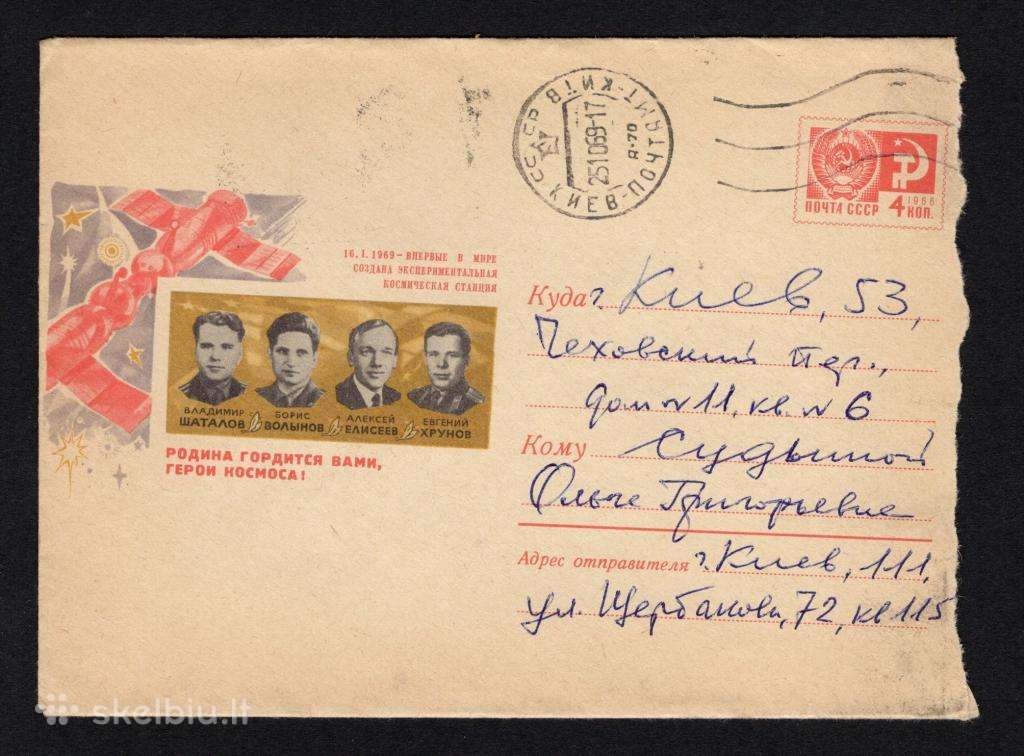 СССР КИЕВ-ПОЧТАМТ-КИТВ
251069-17
Я-70
ПОЧТА СССР
1966
4 КОП.
16.I.1969 — ВПЕРВЫЕ В МИРЕ
СОЗДАНА ЭКСПЕРИМЕНТАЛЬНАЯ
КОСМИЧЕСКАЯ СТАНЦИЯ
ВЛАДИМИР ШАТАЛОВ
БОРИС ВОЛЫНОВ
АЛЕКСЕЙ ЕЛИСЕЕВ
ЕВГЕНИЙ ХРУНОВ
РОДИНА ГОРДИТСЯ ВАМИ,
ГЕРОИ КОСМОСА!
Куда г. Киев, 53,
Чеховский пер.,
дом № 11, кв. № 6
Кому Судьиной
Ольге Григорьевне
Адрес отправителя г. Киев, 111,
ул. Щербакова, 72, кв 115
skelbiu.lt